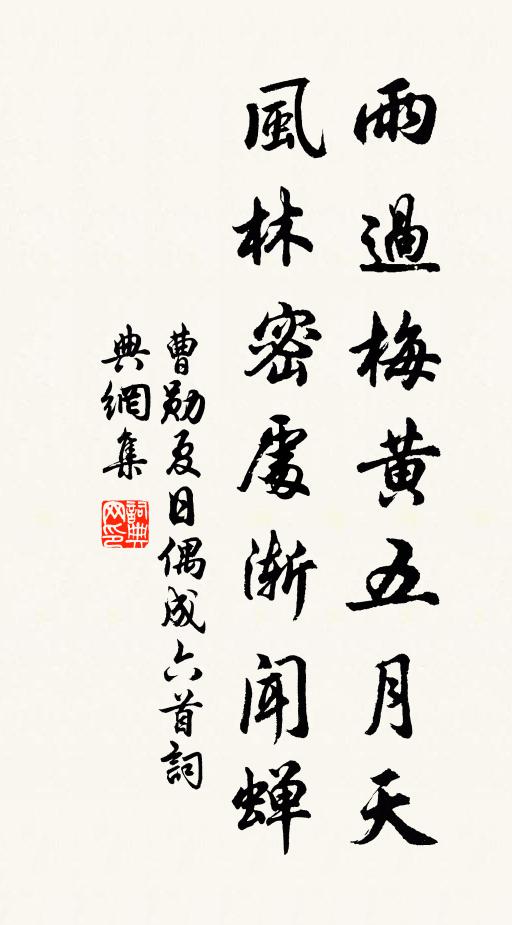 雨過梅黄五月天
風林密處渐聞蝉
曹勛夏日偶成六首詞
典網集
詞典
网印